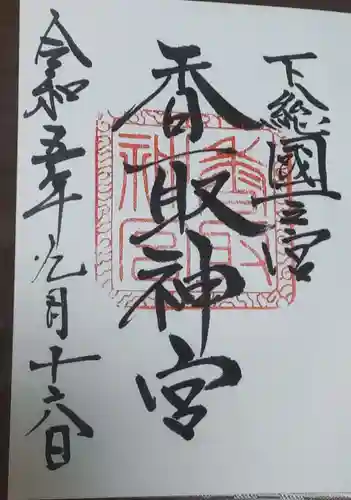 下総國一之宮
香取神宮
令和五年九月十六日